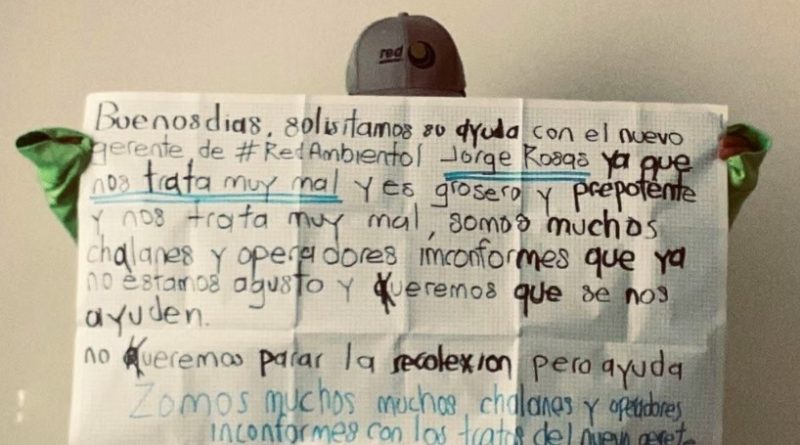 red
Buenos dias, solisitamos su ayuda con el nuevo
gerente de #RedAmbiental Jorge Rosas ya que
nos trata muy mal y es grosero y prepotente
y nos trata muy mal, somos muchos
chalanes y operadores imconformes que ya
no estamos agusto y queremos que se nos
ayuden.
no queremos parar la recolexion pero ayuda
Zomos muchos muchos chalanes y operadores
inconformes con los tratos del nuevo gerete